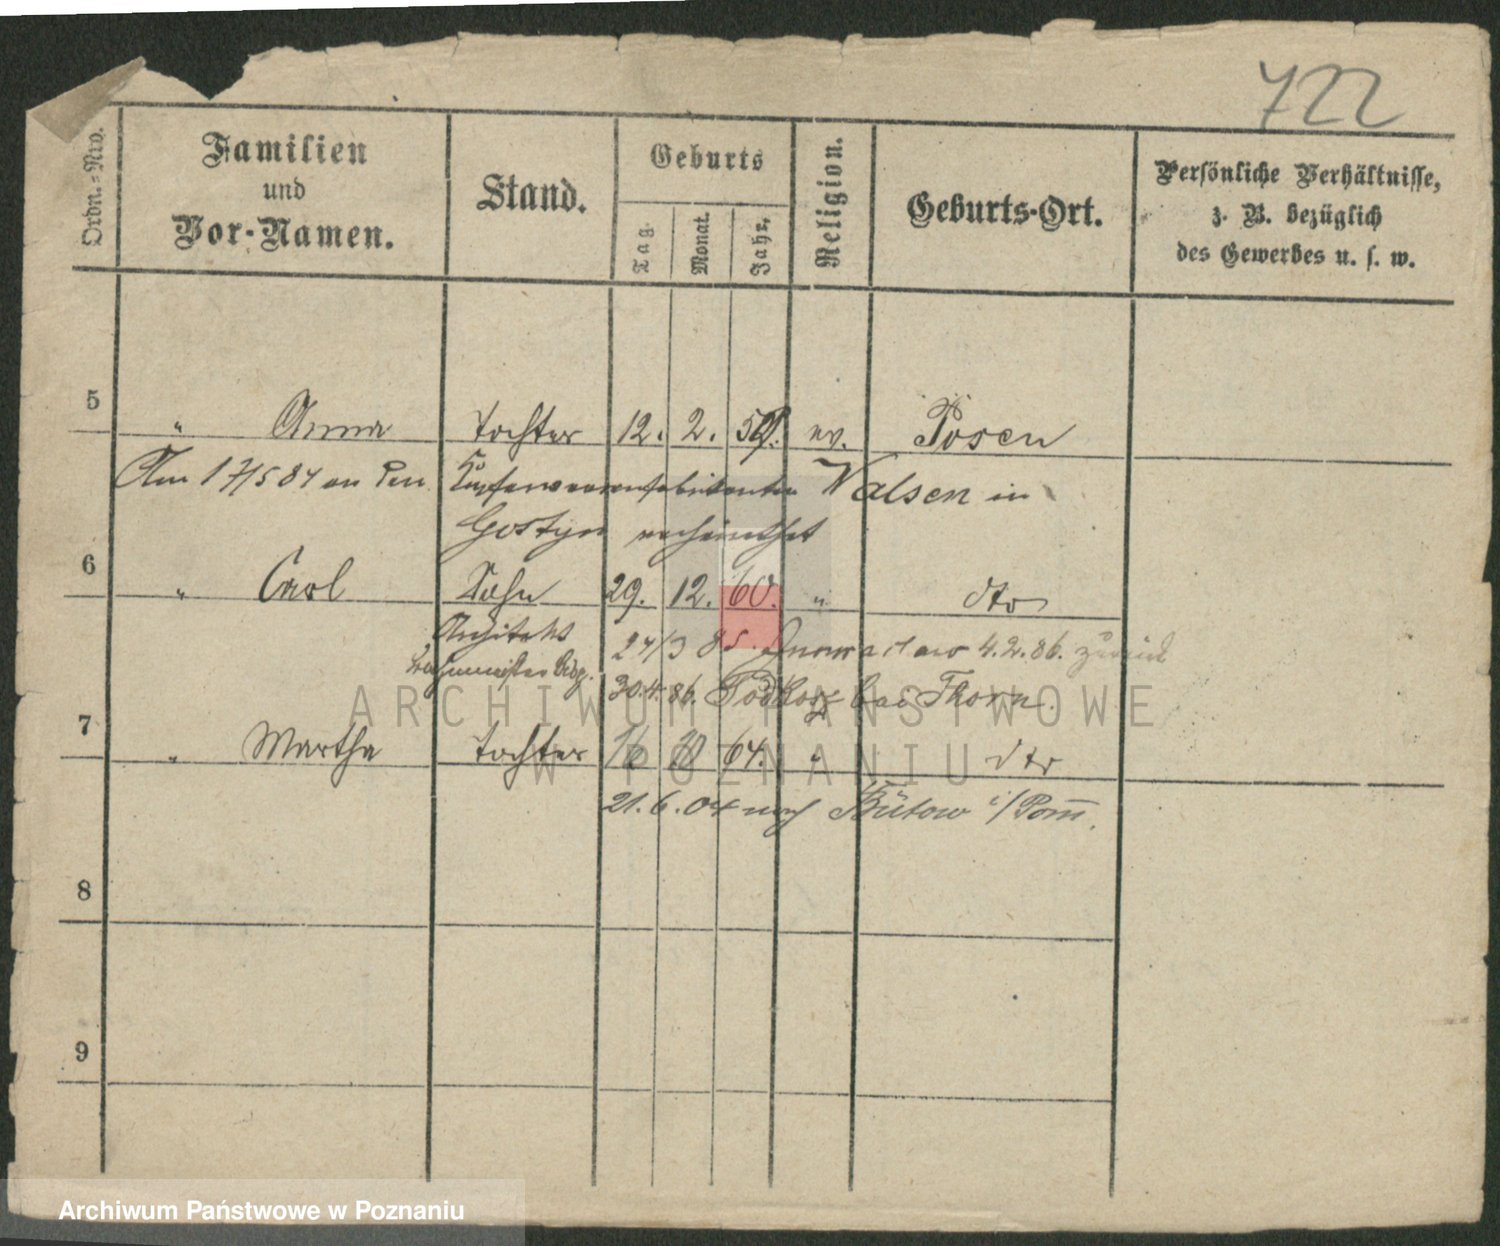 722
Ordn.-Nro.
Familien
und
Vor-Namen.
Stand.
Geburts
Tag.
Monat.
Jahr.
Religion.
Geburts-Ort.
Persönliche Verhältnisse,
z. B. bezüglich
des Gewerbes u. s. w.
5 " Anna Tochter 12. 2. 59. ev. Posen
Am 17/5 84 an den Walsen in
Gostyn verheirathet
6 " Carl Sohn 29. 12. 60. " dto
Architekt 24/3 85. 4.2.86. zurück
30.4.86. bei Thorn.
7 " Martha Tochter 16 10 64. " dto
21.6.04 nach Bütow i/Pom.
8
9
ARCHIWUM PAŃSTWOWE
W POZNANIU
Archiwum Państwowe w Poznaniu